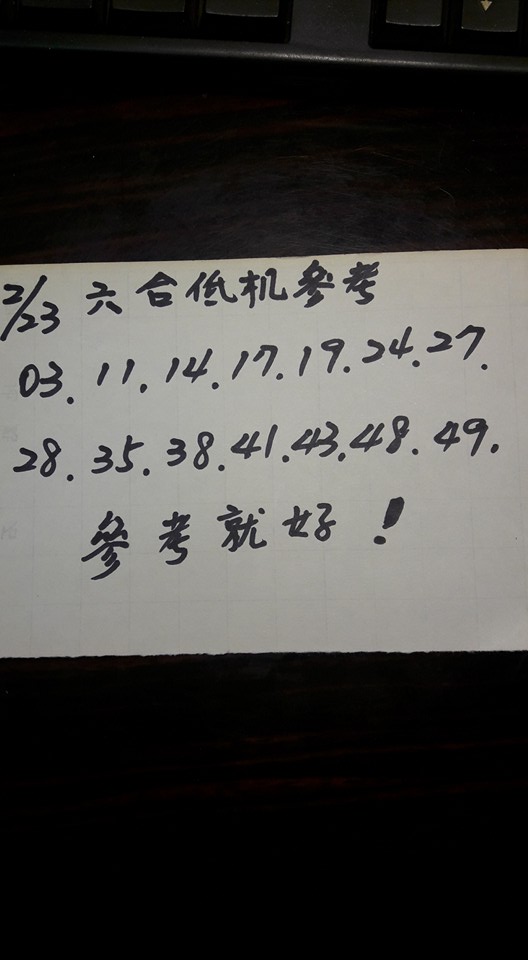 2/23 六合低机參考
03. 11. 14. 17. 19. 24. 27.
28. 35. 38. 41. 43. 48. 49.
參考就好!